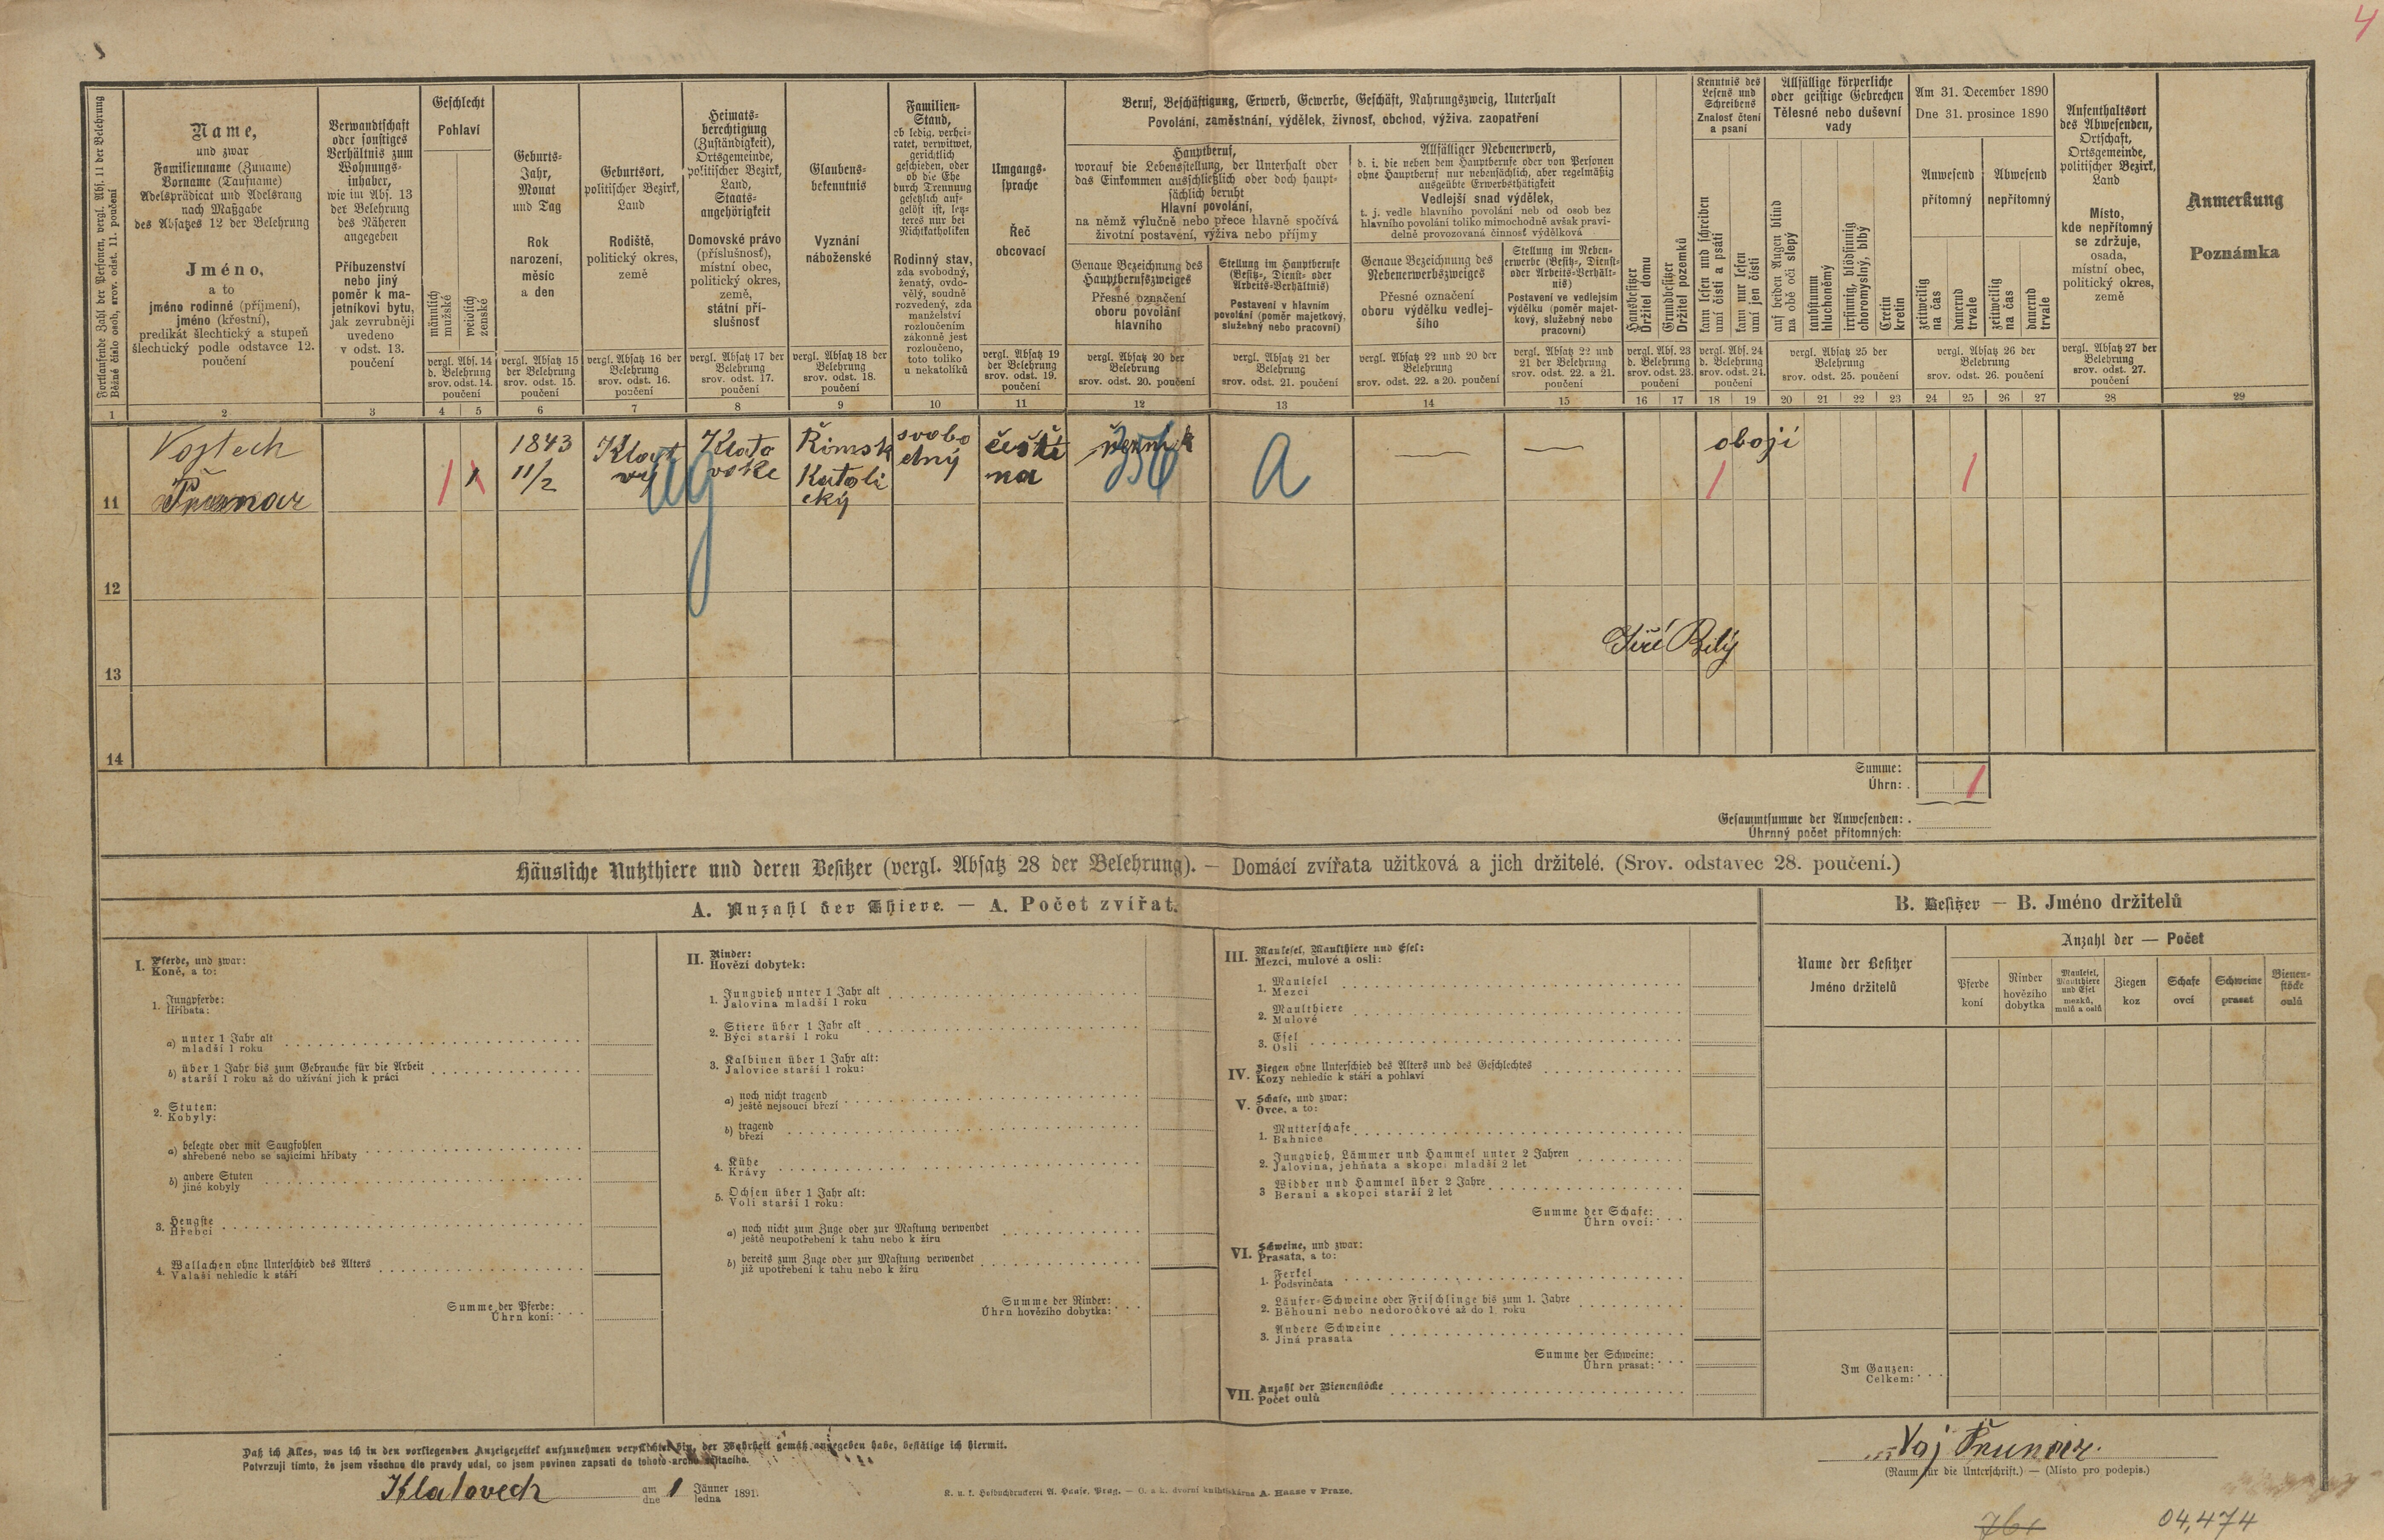 4
Fortlaufende Zahl der Personen, vergl. Abs. 11 der Belehrung
Běžné číslo osob, srov. odst. 11. poučení
1
Name,
und zwar
Familienname (Zuname)
Vorname (Taufname)
Adelsprädicat und Adelsrang
nach Maßgabe
des Absatzes 12 der Belehrung
Jméno,
a to
jméno rodinné (příjmení),
jméno (křestní),
predikát šlechtický a stupeň
šlechtický podle odstavce 12.
poučení
2
Verwandtschaft
oder sonstiges
Verhältnis zum
Wohnungs-
inhaber,
wie im Abs. 13
der Belehrung
des Näheren
angegeben
Příbuzenství
nebo jiný
poměr k ma-
jetníkovi bytu,
jak zevrubněji
uvedeno
v odst. 13.
poučení
3
Geschlecht
Pohlaví
männlich
mužské
weiblich
ženské
vergl. Abs. 14
d. Belehrung
srov. odst. 14.
poučení
4 5
Geburts-
Jahr,
Monat
und Tag
Rok
narození,
měsíc
a den
vergl. Absatz 15
der Belehrung
srov. odst. 15.
poučení
6
Geburtsort,
politischer Bezirk,
Land
Rodiště,
politický okres,
země
vergl. Absatz 16 der
Belehrung
srov. odst. 16.
poučení
7
Heimats-
berechtigung
(Zuständigkeit),
Ortsgemeinde,
politischer Bezirk,
Land,
Staats-
angehörigkeit
Domovské právo
(příslušnosť),
místní obec,
politický okres,
země,
státní pří-
slušnosť
vergl. Absatz 17 der
Belehrung
srov. odst. 17.
poučení
8
Glaubens-
bekenntnis
Vyznání
náboženské
vergl. Absatz 18 der
Belehrung
srov. odst. 18.
poučení
9
Familien-
Stand,
ob ledig, verhei-
ratet, verwitwet,
gerichtlich
geschieden, oder
ob die Ehe
durch Trennung
gesetzlich auf-
gelöst ist, letz-
teres nur bei
Nichtkatholiken
Rodinný stav,
zda svobodný,
ženatý, ovdo-
vělý, soudně
rozvedený, zda
manželství
rozloučením
zákonně jest
rozloučeno,
toto toliko
u nekatolíků
10
Umgangs-
sprache
Řeč
obcovací
vergl. Absatz 19
der Belehrung
srov. odst. 19.
poučení
11
Beruf, Beschäftigung, Erwerb, Gewerbe, Geschäft, Nahrungszweig, Unterhalt
Povolání, zaměstnání, výdělek, živnosť, obchod, výživa, zaopatření
Hauptberuf,
worauf die Lebensstellung, der Unterhalt oder
das Einkommen ausschließlich oder doch haupt-
sächlich beruht
Hlavní povolání,
na němž výlučně nebo přece hlavně spočívá
životní postavení, výživa nebo příjmy
Genaue Bezeichnung des
Hauptberufszweiges
Přesné označení
oboru povolání
hlavního
vergl. Absatz 20 der
Belehrung
srov. odst. 20. poučení
12
Stellung im Hauptberufe
(Besitz-, Dienst- oder
Arbeits-Verhältnis)
Postavení v hlavním
povolání (poměr majetkový,
služebný nebo pracovní)
vergl. Absatz 21 der
Belehrung
srov. odst. 21. poučení
13
Allfälliger Nebenerwerb,
d. i. die neben dem Hauptberufe oder von Personen
ohne Hauptberuf nur nebensächlich, aber regelmäßig
ausgeübte Erwerbsthätigkeit
Vedlejší snad výdělek,
t. j. vedle hlavního povolání neb od osob bez
hlavního povolání toliko mimochodně avšak pravi-
delně provozovaná činnosť výdělková
Genaue Bezeichnung des
Nebenerwerbszweiges
Přesné označení
oboru výdělku vedlej-
šího
vergl. Absatz 22 und 20 der
Belehrung
srov. odst. 22. a 20. poučení
14
Stellung im Neben-
erwerbe (Besitz-, Dienst-
oder Arbeits-Verhält-
nis)
Postavení ve vedlejším
výdělku (poměr majet-
kový, služebný nebo
pracovní)
vergl. Absatz 22 und
21 der Belehrung
srov. odst. 22. a 21.
poučení
15
Hausbesitzer
Držitel domu
Grundbesitzer
Držitel pozemků
vergl. Abs. 23
d. Belehrung
srov. odst. 23.
poučení
16 17
Kenntnis des
Lesens und
Schreibens
Znalosť čtení
a psaní
kann lesen und schreiben
umí čísti a psáti
kann nur lesen
umí jen čísti
vergl. Abs. 24
d. Belehrung
srov. odst. 24.
poučení
18 19
Allfällige körperliche
oder geistige Gebrechen
Tělesné nebo duševní
vady
auf beiden Augen blind
na obě oči slepý
taubstumm
hluchoněmý
irrsinnig, blödsinnig
choromyslný, blbý
Cretin
kretin
vergl. Absatz 25 der
Belehrung
srov. odst. 25. poučení
20 21 22 23
Am 31. December 1890
Dne 31. prosince 1890
Anwesend
přítomný
Abwesend
nepřítomný
zeitweilig
na čas
dauernd
trvale
zeitweilig
na čas
dauernd
trvale
vergl. Absatz 26 der
Belehrung
srov. odst. 26. poučení
24 25 26 27
Aufenthaltsort
des Abwesenden,
Ortschaft,
Ortsgemeinde,
politischer Bezirk,
Land
Místo,
kde nepřítomný
se zdržuje,
osada,
místní obec,
politický okres,
země
vergl. Absatz 27 der
Belehrung
srov. odst. 27.
poučení
28
Anmerkung
Poznámka
29
11
Vojtech
1 1
1843
11/2
Klat
vy
Klato
vske
Římsk
Katoli
cký
svobo
dný
češti
na
356
a
obojí
1
1
12
13
Jiří Bílý
14
Summe:
Úhrn:
1
Gesammtsumme der Anwesenden:
Úhrnný počet přítomných:
Häusliche Nutzthiere und deren Besitzer (vergl. Absatz 28 der Belehrung). — Domácí zvířata užitková a jich držitelé. (Srov. odstavec 28. poučení.)
A. Anzahl der Thiere. — A. Počet zvířat.
I. Pferde, und zwar:
Koně, a to:
1. Jungpferde:
Hříbata:
a) unter 1 Jahr alt
mladší 1 roku
b) über 1 Jahr bis zum Gebrauche für die Arbeit
starší 1 roku až do užívání jich k práci
2. Stuten:
Kobyly:
a) belegte oder mit Saugfohlen
shřebené nebo se sajícími hříbaty
b) andere Stuten
jiné kobyly
3. Hengste
Hřebci
4. Wallachen ohne Unterschied des Alters
Valaši nehledíc k stáří
Summe der Pferde:
Úhrn koní:
II. Rinder:
Hovězí dobytek:
1. Jungvieh unter 1 Jahr alt
Jalovina mladší 1 roku
2. Stiere über 1 Jahr alt
Býci starší 1 roku
3. Kalbinen über 1 Jahr alt:
Jalovice starší 1 roku:
a) noch nicht tragend
ještě nejsoucí březí
b) tragend
březí
4. Kühe
Krávy
5. Ochsen über 1 Jahr alt:
Voli starší 1 roku:
a) noch nicht zum Zuge oder zur Mastung verwendet
ještě neupotřebení k tahu nebo k žíru
b) bereits zum Zuge oder zur Mastung verwendet
již upotřebení k tahu nebo k žíru
Summe der Rinder:
Úhrn hovězího dobytka:
III. Maulesel, Maulthiere und Esel:
Mezci, mulové a osli:
1. Maulesel
Mezci
2. Maulthiere
Mulové
3. Esel
Osli
IV. Ziegen ohne Unterschied des Alters und des Geschlechtes
Kozy nehledíc k stáří a pohlaví
V. Schafe, und zwar:
Ovce, a to:
1. Mutterschafe
Bahnice
2. Jungvieh, Lämmer und Hammel unter 2 Jahren
Jalovina, jehňata a skopci mladší 2 let
3 Widder und Hammel über 2 Jahre
Berani a skopci starší 2 let
Summe der Schafe:
Úhrn ovcí:
VI. Schweine, und zwar:
Prasata, a to:
1. Ferkel
Podsvinčata
2. Läufer-Schweine oder Frischlinge bis zum 1. Jahre
Běhouni nebo nedoročkové až do 1. roku
3. Andere Schweine
Jiná prasata
Summe der Schweine:
Úhrn prasat:
VII. Anzahl der Bienenstöcke
Počet oulů
B. Besitzer — B. Jméno držitelů
Name der Besitzer
Jméno držitelů
Anzahl der — Počet
Pferde
koní
Rinder
hovězího
dobytka
Maulesel,
Maulthiere
und Esel
mezků,
mulů a oslů
Ziegen
koz
Schafe
ovcí
Schweine
prasat
Bienen-
stöcke
oulů
Im Ganzen:
Celkem:
Daß ich Alles, was ich in den vorliegenden Anzeigezettel aufzunehmen verpflichtet bin, der Wahrheit gemäß angegeben habe, bestätige ich hiermit.
Potvrzuji tímto, že jsem všechno dle pravdy udal, co jsem povinen zapsati do tohoto archu sčítacího.
Klatovech am
dne 1 Jänner
ledna 1891.
K. u. k. Hofbuchdruckerei A. Haase, Prag. — C. a k. dvorní knihtiskárna A. Haase v Praze.
Voj
(Raum für die Unterschrift.) — (Místo pro podepis.)
761
04,474